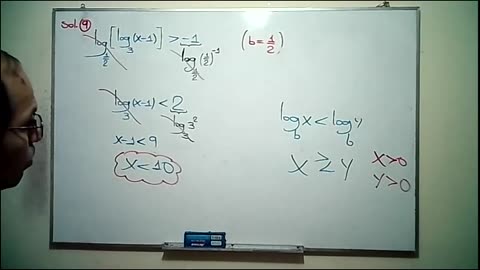 Sol. 9
log_{1/2} [log_3 (x-1)] > -1
log_{1/2} (1/2)^{-1}
(b = 1/2)
log_3 (x-1) < 2
log_3 3^2
x-1 < 9
x < 10
log_b x < log_b y
x ≥ y
x > 0
y > 0